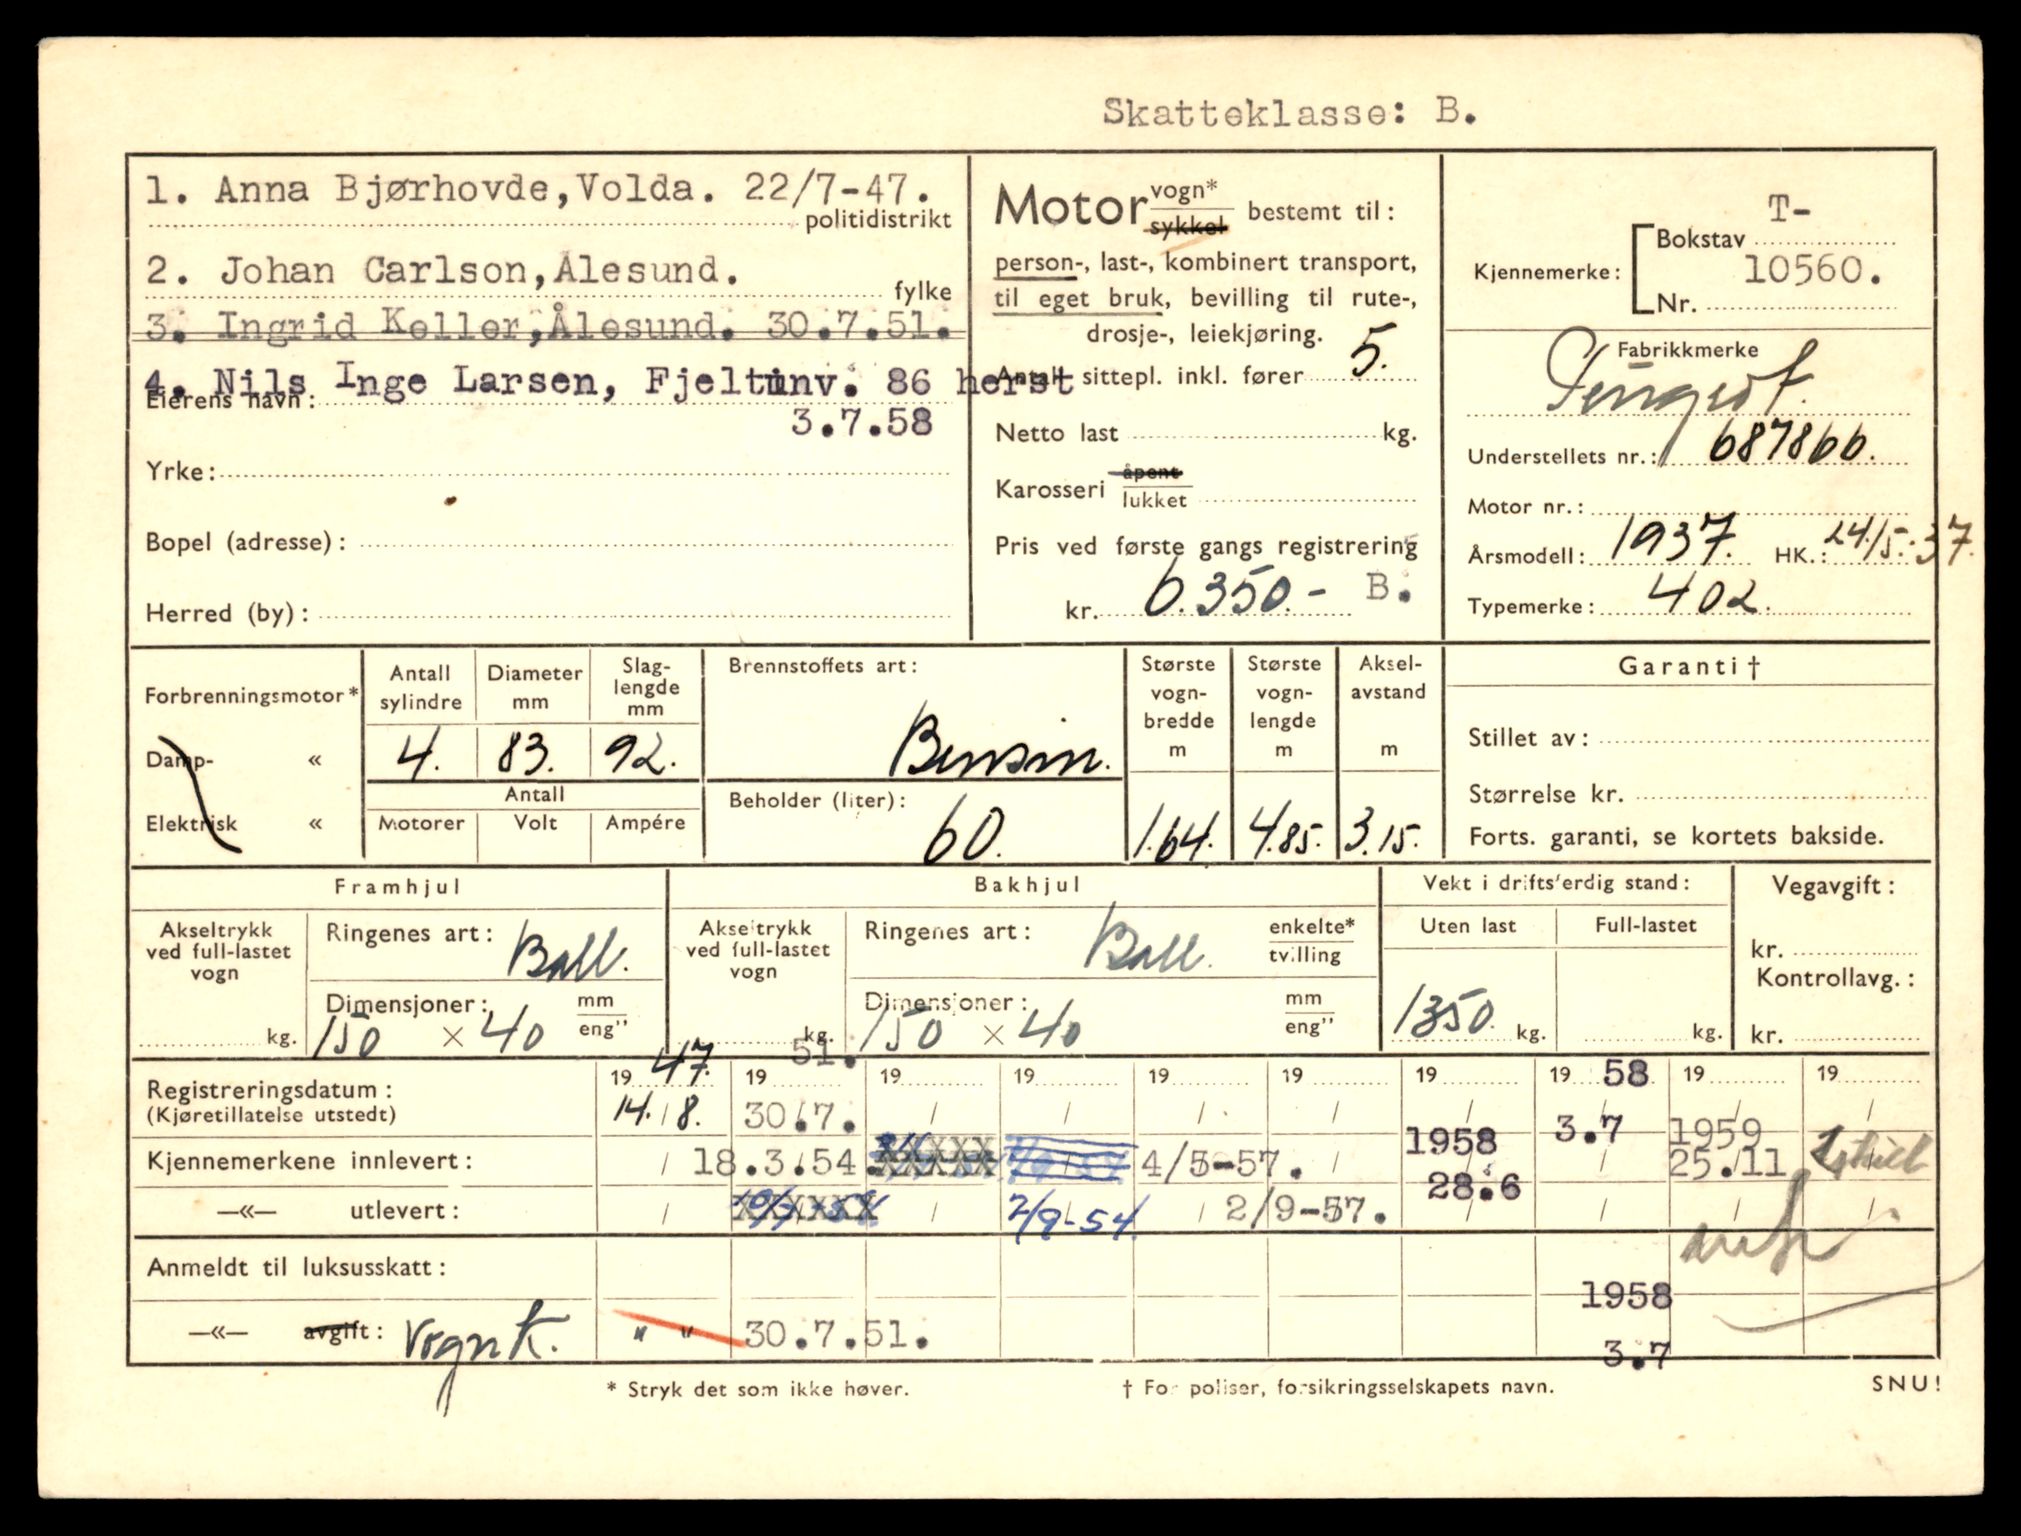 Skatteklasse: B.
1. Anna Bjørhovde,Volda. 22/7-47.
politidistrikt
2. Johan Carlson,Ålesund.
fylke
3. Ingrid Keller,Ålesund. 30.7.51.
4. Nils Inge Larsen, Fjeltunv. 86 herst
Eierens navn:
3.7.58
Yrke:
Bopel (adresse):
Herred (by):
Motor vogn*
sykkel bestemt til:
person-, last-, kombinert transport,
til eget bruk, bevilling til rute-,
drosje-, leiekjøring.
Antall sittepl. inkl. fører 5.
Netto last kg.
Karosseri åpent
lukket
Pris ved første gangs registrering
kr. 6.350.- B.
T-
Kjennemerke: Bokstav
10560.
Nr.
Fabrikkmerke
Understellets nr.: 687866.
Motor nr.:
Årsmodell: 1937. HK.: 24/5.-37.
Typemerke: 402.
Forbrenningsmotor*
Damp- «
Elektrisk «
Antall sylindre
Diameter mm
Slag-
lengde
mm
4. 83. 92.
Antall
Motorer Volt Ampére
Brennstoffets art:
Bensin.
Beholder (liter):
60.
Største
vogn-
bredde
m
1.64.
Største
vogn-
lengde
m
4.85.
Aksel-
avstand
m
3.15.
Garanti †
Stillet av:
Størrelse kr.
Forts. garanti, se kortets bakside.
Framhjul
Akseltrykk
ved full-lastet
vogn
kg.
Ringenes art: Ball.
Dimensjoner: mm
eng"
150 × 40
Bakhjul
Akseltrykk
ved full-lastet
vogn
kg.
Ringenes art: Ball. enkelte*
tvilling
Dimensjoner: mm
eng"
150 × 40
Vekt i driftsferdig stand:
Uten last Full-lastet
1350 kg. kg.
Vegavgift:
kr.
Kontrollavg.:
kr.
Registreringsdatum: 19 47. 19 51. 19 19 19 19 19 19 58 19 19
(Kjøretillatelse utstedt) 14. / 8. 30.7. / / / / / 3.7 / /
Kjennemerkene innlevert: / 18.3.54. 4/5-57. 1958 28.6 / 1959 25.11
—«— utlevert: / / 2/9-54. / 2/9-57. / / / /
Anmeldt til luksusskatt:
—«— avgift: Vognk. " " 30.7.51. 1958
3.7
* Stryk det som ikke høver.
† For poliser, forsikringsselskapets navn.
SNU!